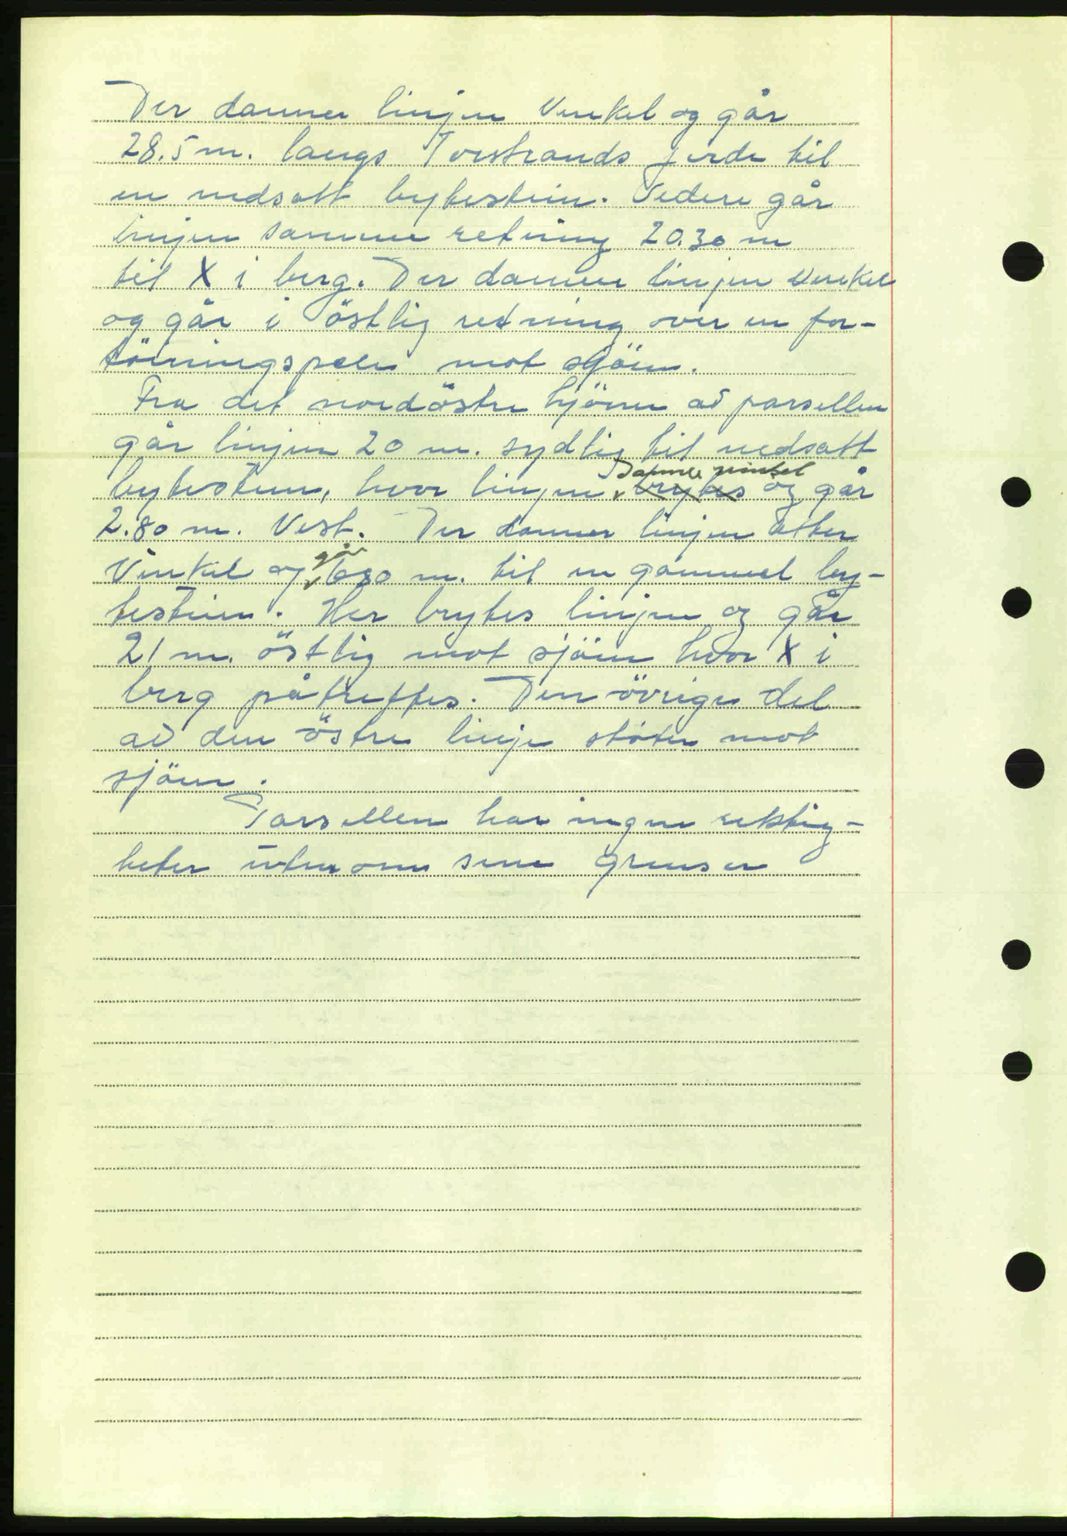 Der danner linjen Vinkel og går
28.5 m. langs Torstrands jorde til
en nedsatt bytestein. Videre går
linjen samme retning 20.30 m
til X i berg. Der danner linjen Vinkel
og går i östlig retning over en for-
töiningspæle mot sjöen.
Fra det nordöstre hjörne av parsellen
går linjen 20 m. sydlig til nedsatt
danner vinkel
bytestein, hvor linjen brytes og går
2.80 m. Vest. Der danner linjen atter
går
Vinkel og m. til en gammel by-
testein. Her brytes linjen og går
21 m. östlig mot sjöen hvor X i
berg påtreffes. Den övrige del
av den östre linje stöter mot
sjöen.
Parsellen har ingen rettig-
heter utenom sine grenser